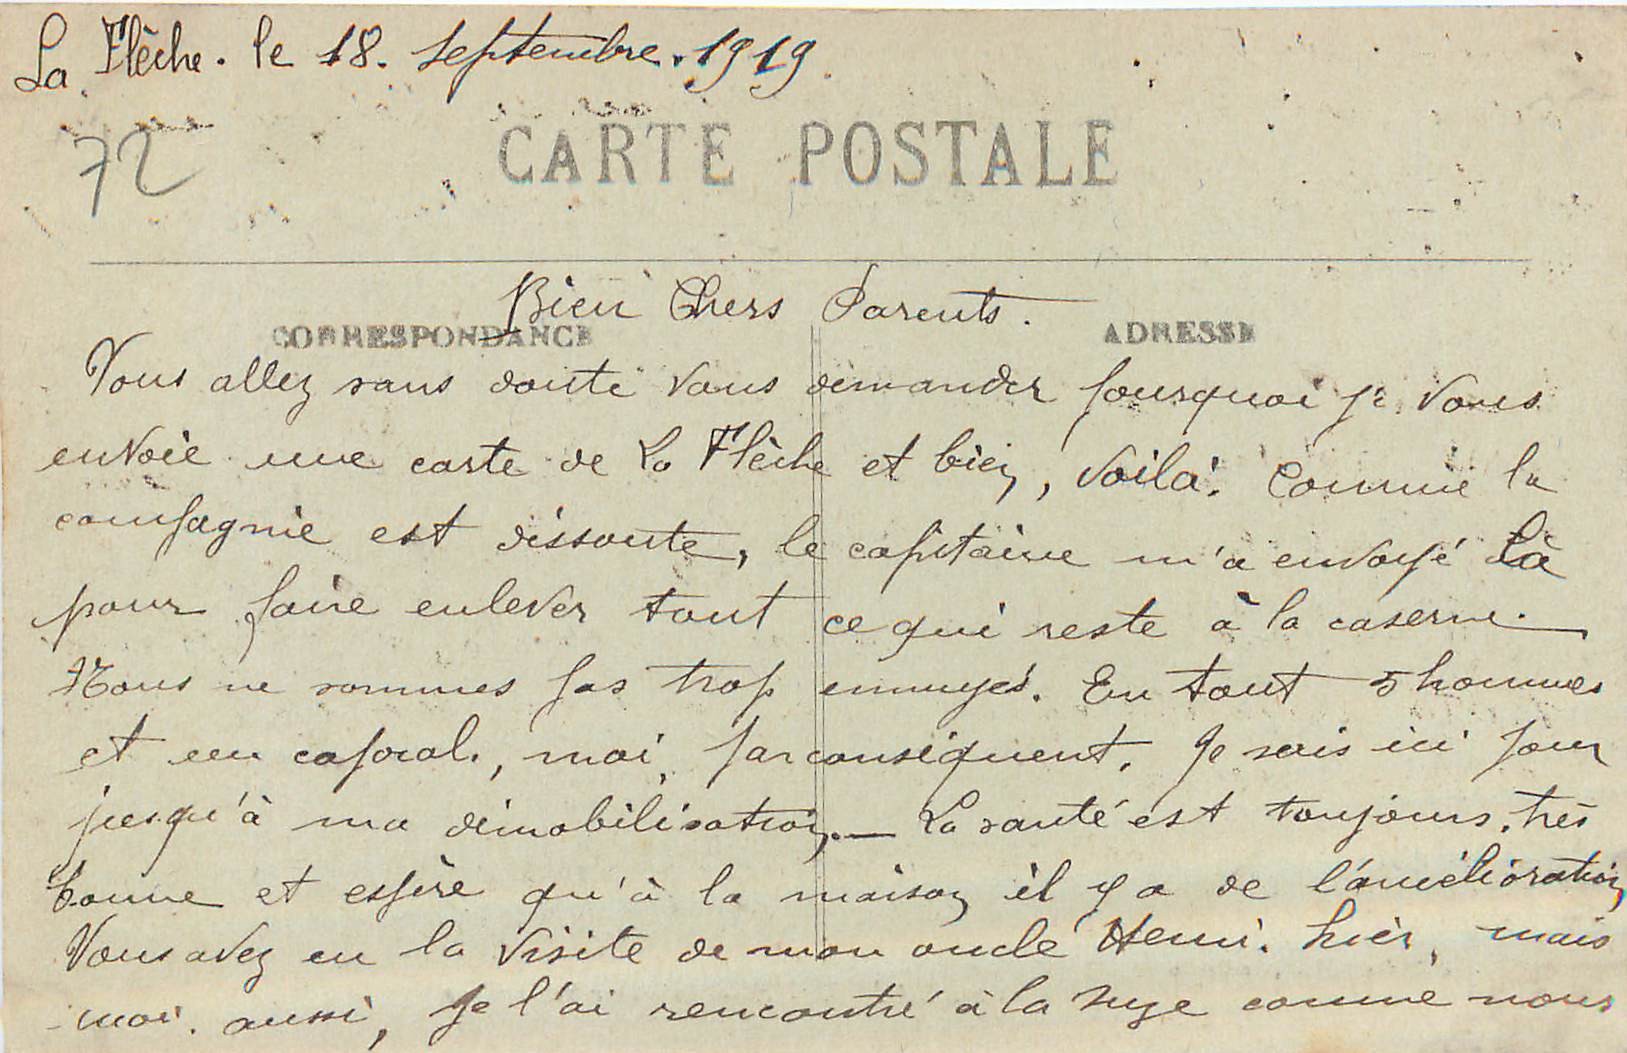 La Flèche. le 18. Septembre. 1919.
72
CARTE POSTALE
Bien Chers Parents.
CORRESPONDANCE ADRESSE
Vous allez sans doute vous demander pourquoi je vous
envoie une carte de La Flèche et bien, voilà. Comme la
compagnie est dissoute, le capitaine m'a envoyé là
pour faire enlever tout ce qui reste à la caserne.
Nous ne sommes pas trop ennuyés. En tout 5 hommes
et un caporal, moi, par conséquent. Je suis ici pour
jusqu'à ma démobilisation. — La santé est toujours très
bonne et espère qu'à la maison il y a de l'amélioration
Vous avez eu la visite de mon oncle Henri. hier, mais
moi. aussi, je l'ai rencontré à la Suze comme nous